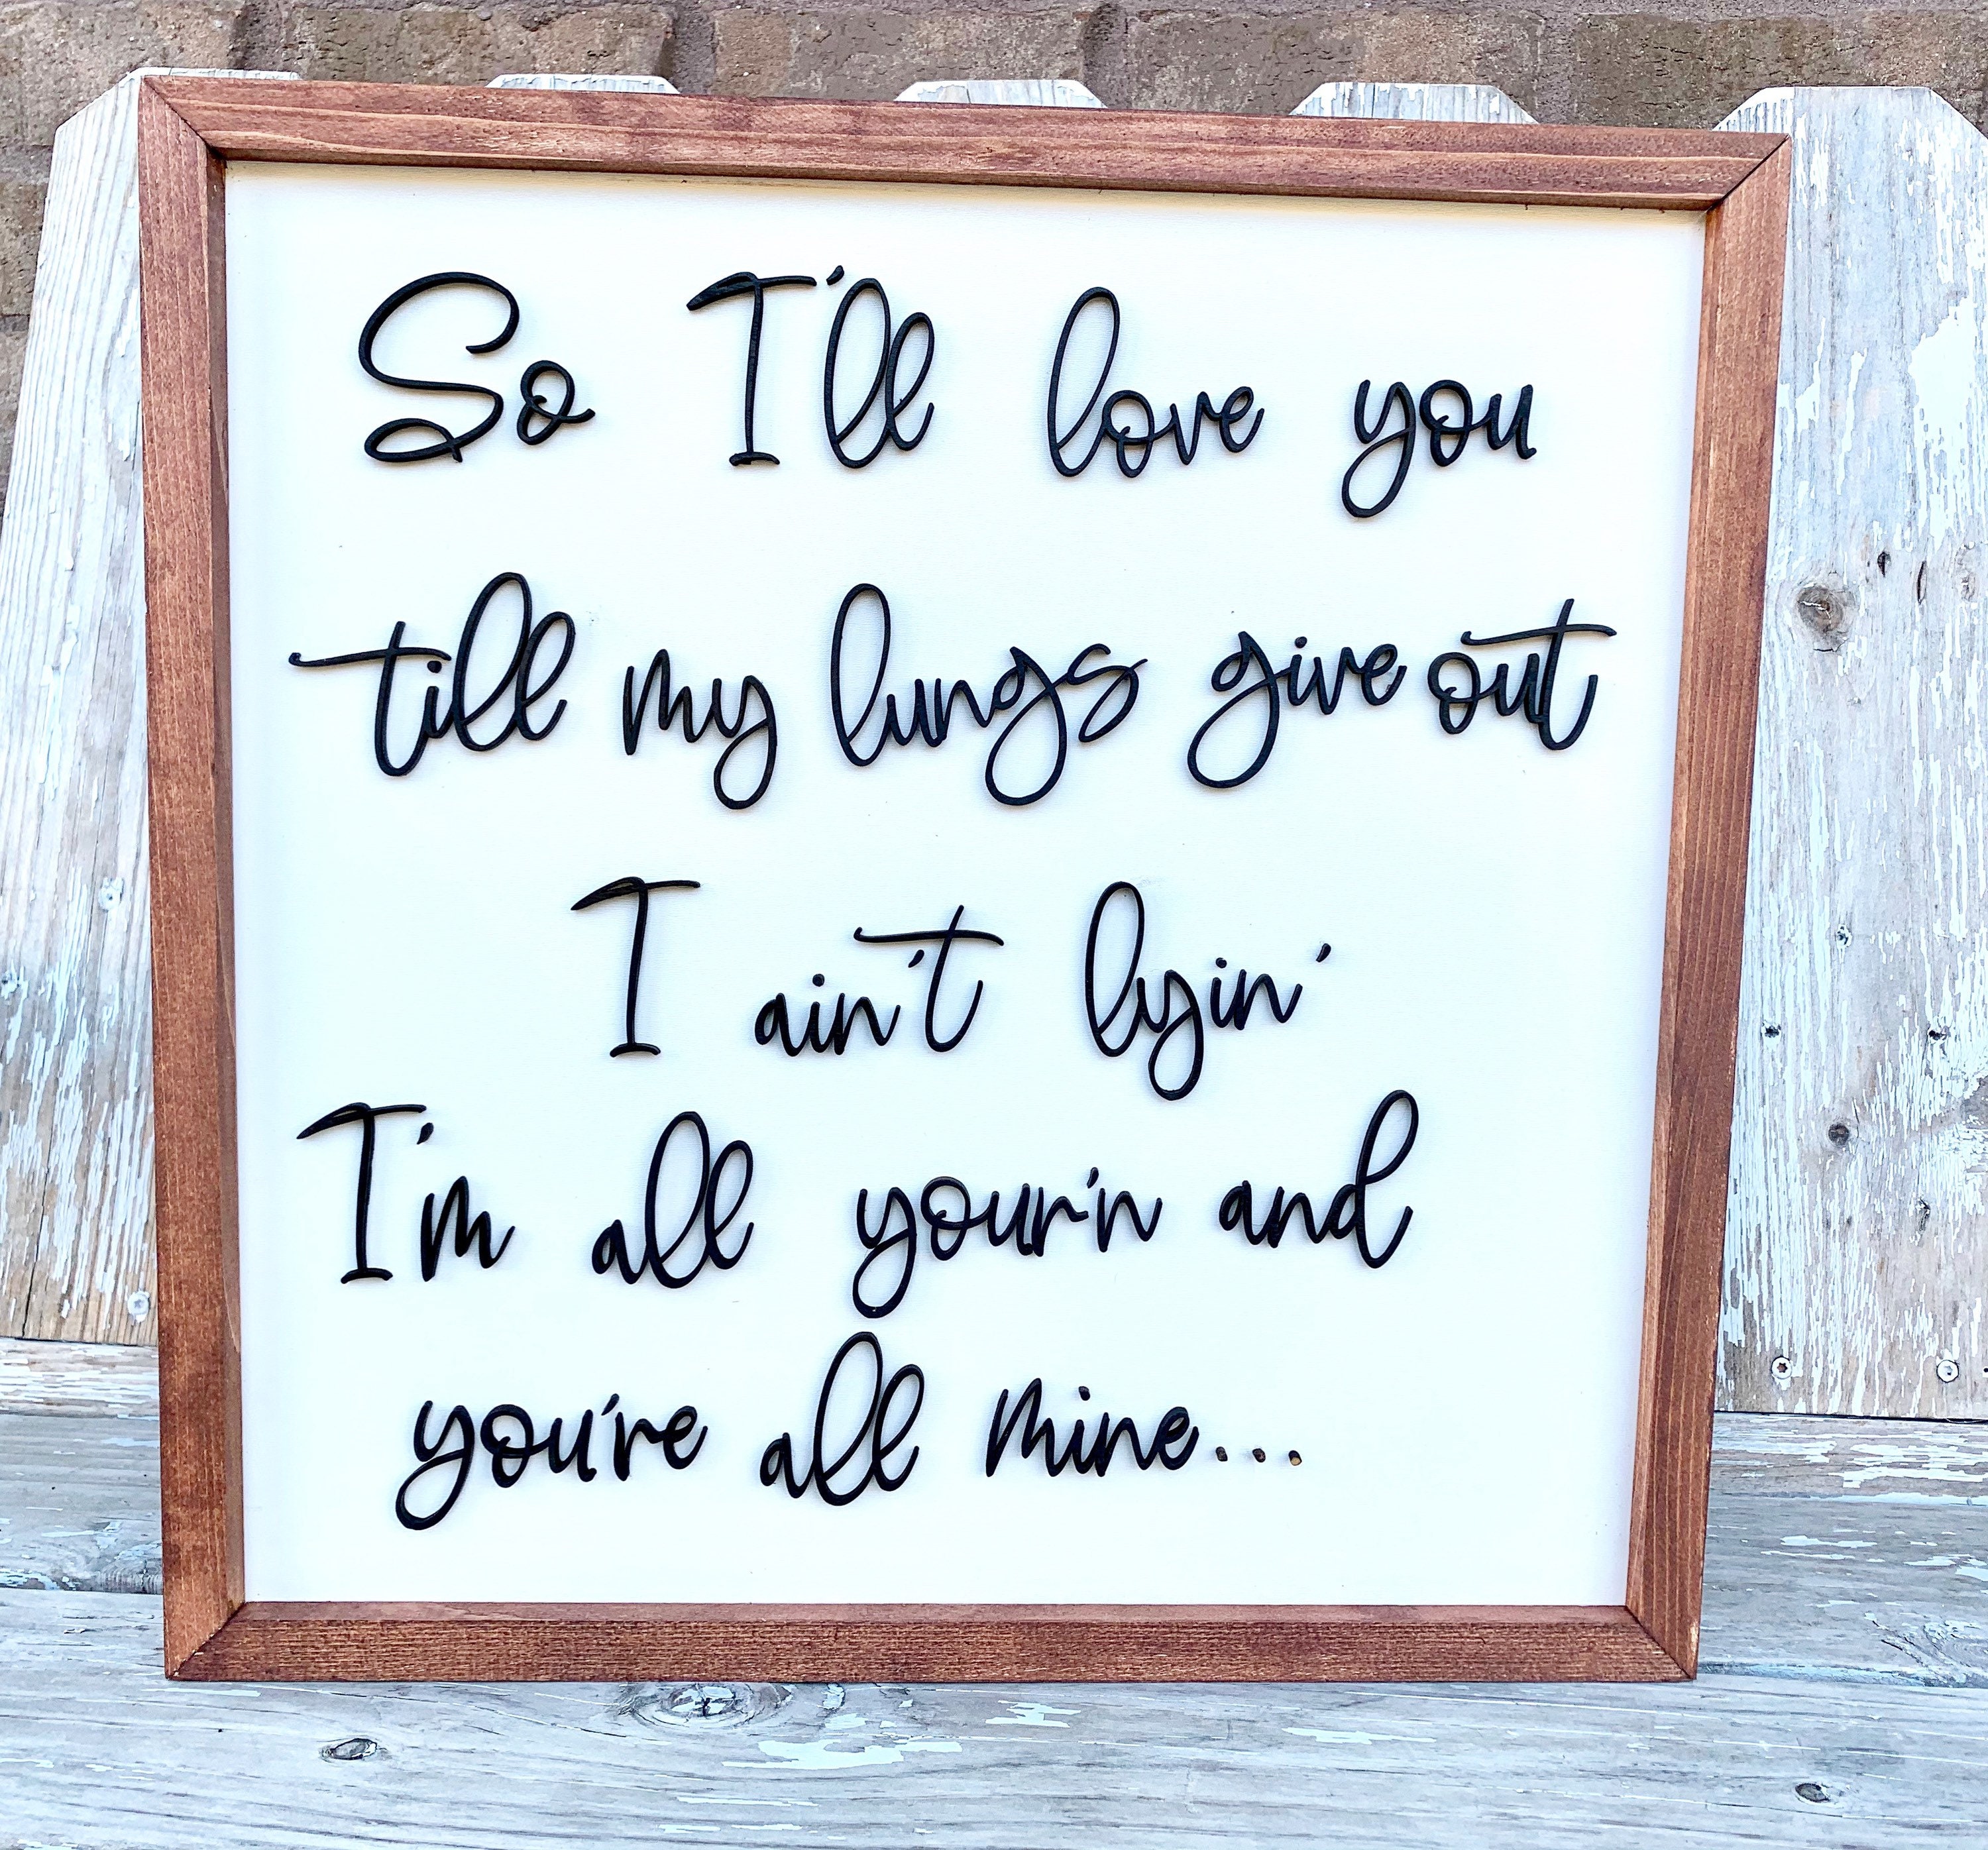 So I'll love you
till my lungs give out
I ain't lyin'
I'm all your'n and
you're all mine...